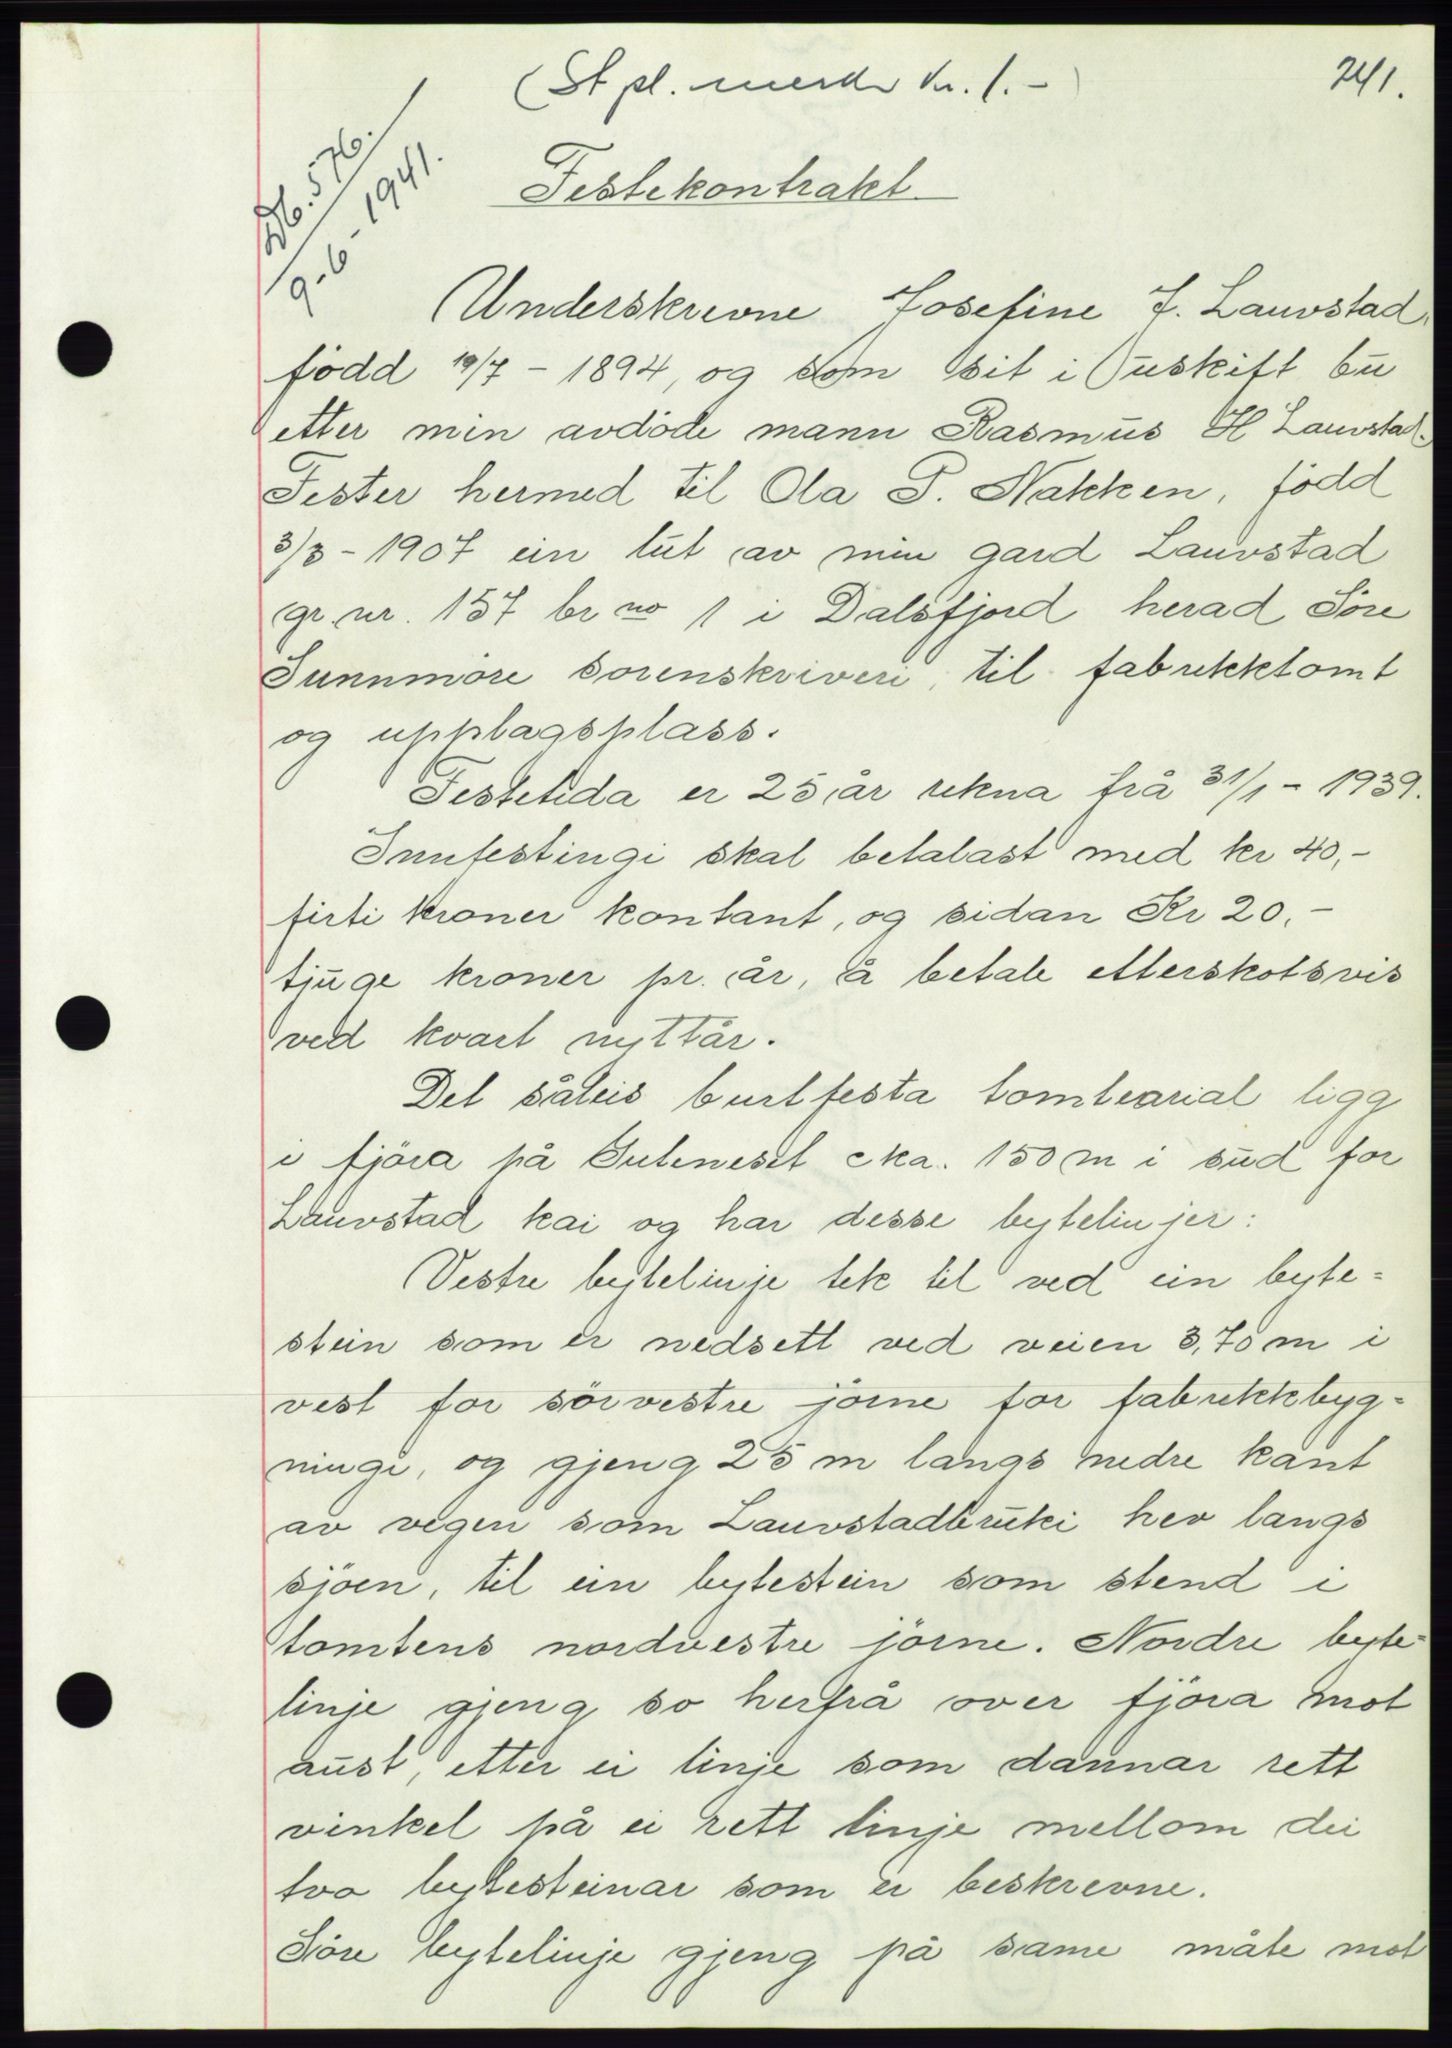 (St pl. merke kr. 1.-)
241.
Db. 576.
9-6-1941.
Festekontrakt.
Underskrevne Josefine J. Lauvstad,
född 19/7 - 1894, og som sit i uskift bu
etter min avdöde mann Rasmus H Lauvstad.
Fester hermed til Ola P. Nakken, född
3/3 - 1907 ein lut av min gard Lauvstad
gr. nr. 157 br no 1 i Dalsfjord herad Söre
Sunnmöre sorenskriveri, til fabrikktomt
og upplagsplass.
Festetida er 25 år rekna frå 31/1 - 1939.
Innfestingi skal betalast med kr 40,-
firti kroner kontant, og sidan Kr 20.-
tjuge kroner pr. år, å betale etterskotsvis
ved kvart nyttår.
Det såleis burtfesta tomtearial ligg
i fjöra på Suteneset cka. 150 m i sud for
Lauvstad kai og har desse bytelinjer:
Vestre bytelinje tek til ved ein byte=
stein som er nedsett ved veien 3,70 m i
vest for sörvestre jörne for fabrikkbyg=
ningi, og gjeng 25 m langs nedre kant
av vegen som Lauvstadbruki hev langs
sjöen, til ein bytestein som stend i
tomtens nordvestre jörne. Nordre byte=
linje gjeng so herfrå over fjöra mot
aust, etter ei linje som dannar rett
vinkel på ei rett linje mellom dei
tvo bytesteinar som er beskrevne.
Söre bytelinje gjeng på same måte mot